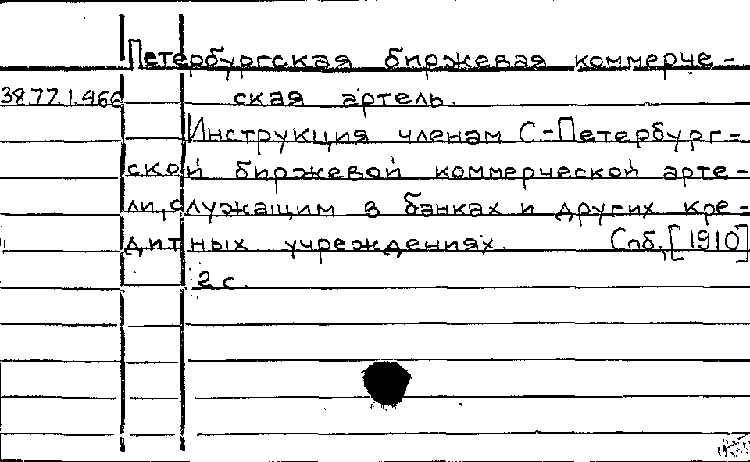 Петербургская биржевая коммерче-
38.77.1.466 ская артель.
Инструкция членам С-Петербург-
ской биржевой коммерческой арте-
ли, служащим в банках и других кре-
дитных учреждениях. Спб, [1910]
2 с.